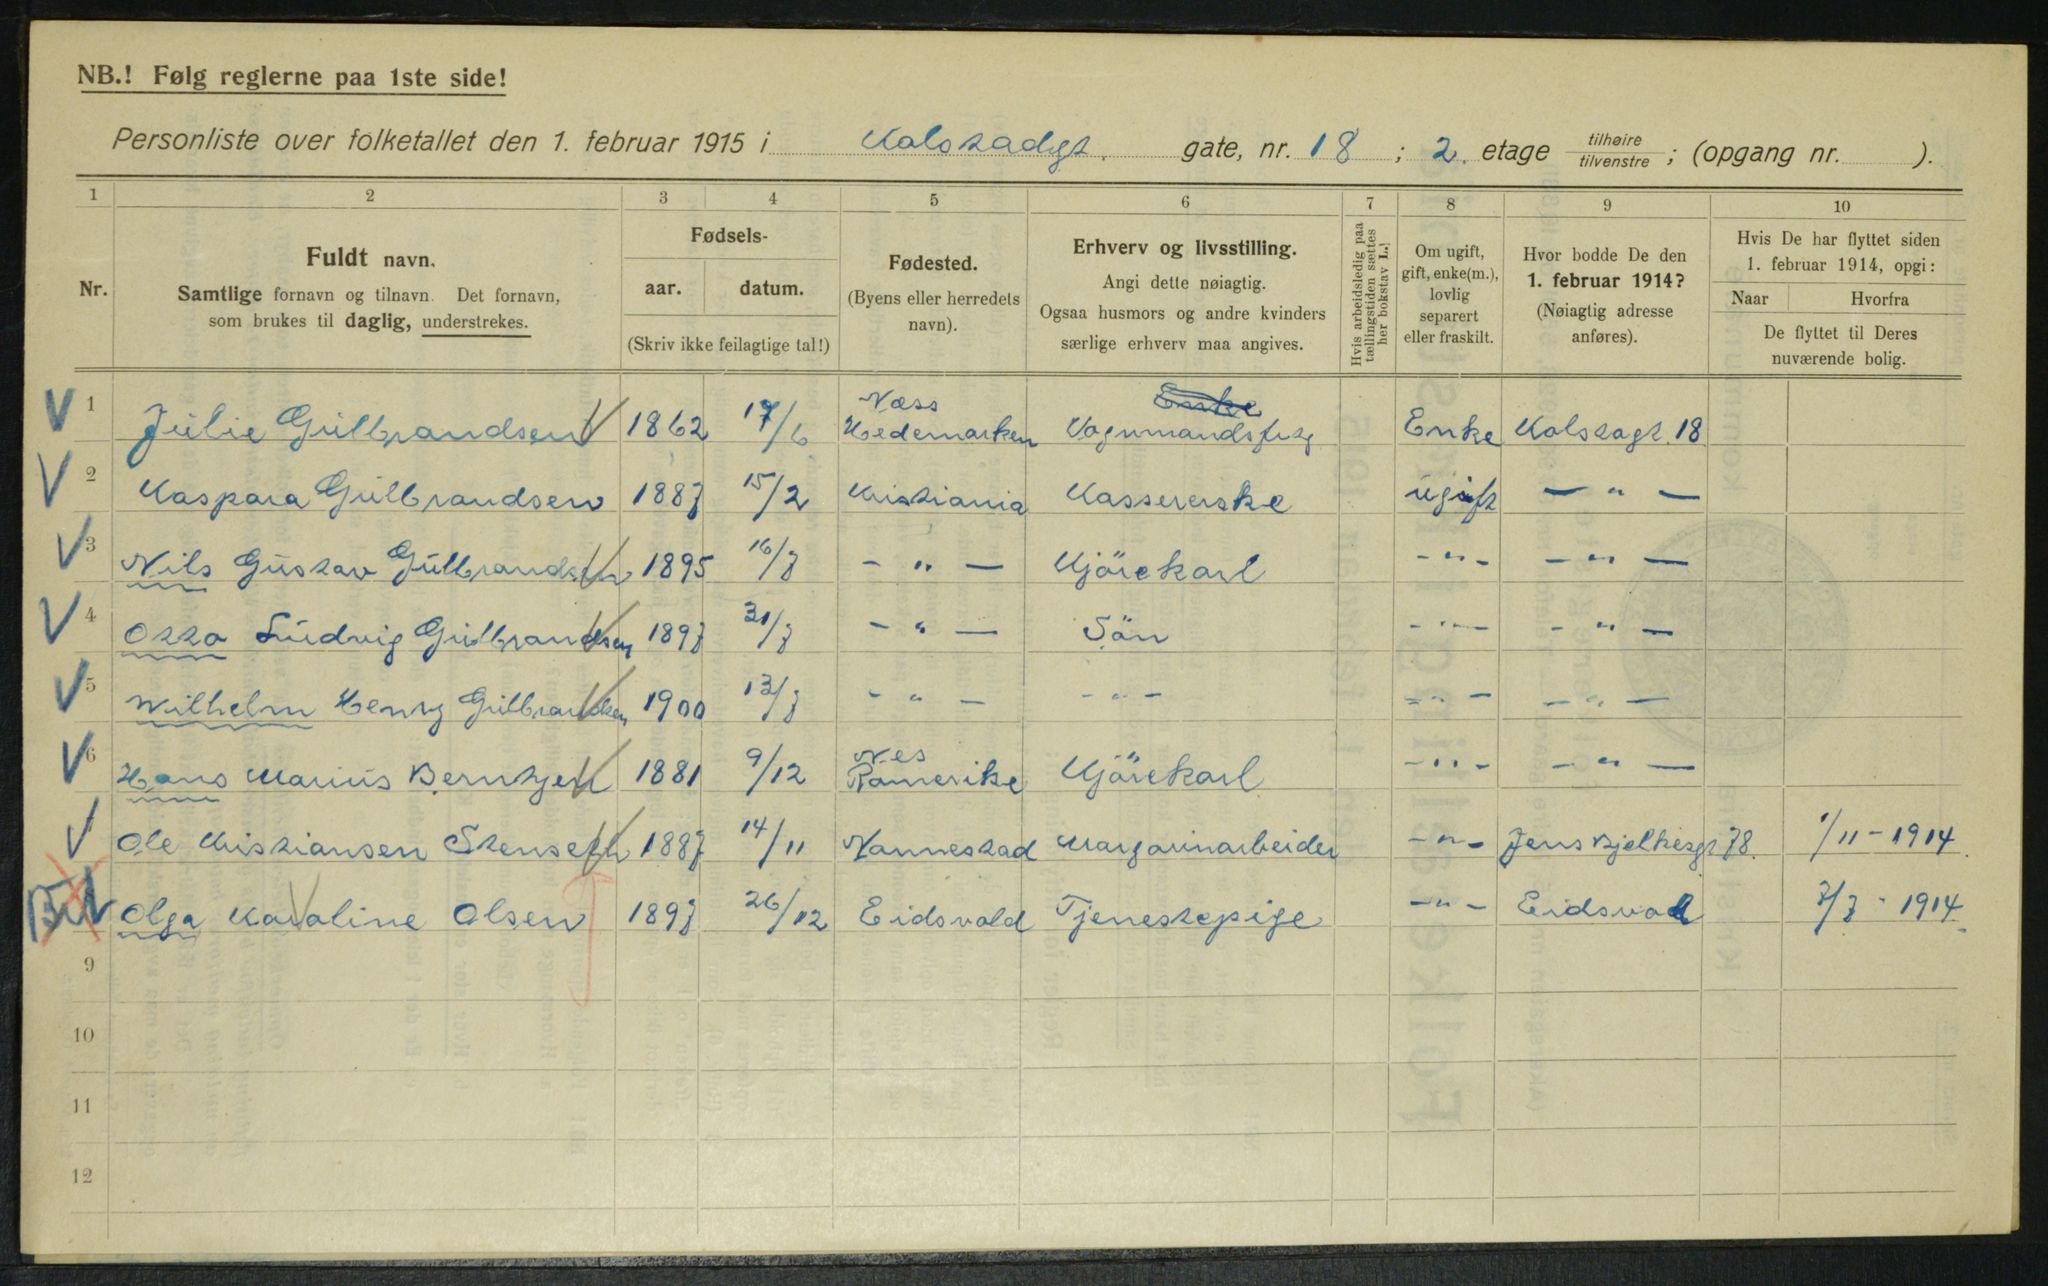 NB.! Følg reglerne paa 1ste side!
Personliste over folketallet den 1. februar 1915 i Kolstadgt. gate, nr. 18 ; 2. etage tilhøire tilvenstre ; (opgang nr. ).
1 2 3 4 5 6 7 8 9 10
Nr.
Fuldt navn.
Samtlige fornavn og tilnavn. Det fornavn,
som brukes til daglig, understrekes.
Fødsels-
aar. datum.
(Skriv ikke feilagtige tal!)
Fødested.
(Byens eller herredets
navn).
Erhverv og livsstilling.
Angi dette nøiagtig.
Ogsaa husmors og andre kvinders
særlige erhverv maa angives.
Hvis arbeidsledig paa
tællingstiden sættes
her bokstav L.!
Om ugift,
gift, enke(m.),
lovlig
separert
eller fraskilt.
Hvor bodde De den
1. februar 1914?
(Nøiagtig adresse
anføres).
Hvis De har flyttet siden
1. februar 1914, opgi:
Naar Hvorfra
De flyttet til Deres
nuværende bolig.
1 Julie Gulbrandsen 1862 17/6 Næss Hedemarken Enke Vognmandsfrtg Enke Kolstagt. 18
2 Kaspara Gulbrandsen 1887 15/2 Kristiania Kassererske ugift — " —
3 Nils Gustav Gulbrandsen 1895 16/7 — " — Kjörekarl — " — — " —
4 Otto Ludvig Gulbrandsen 1897 31/7 — " — Sön — " — — " —
5 Wilhelm Henry Gulbrandsen 1900 13/7 — " — — " — — " — — " —
6 Hans Marius Berntzen 1881 9/12 Nes Romerike Kjörekarl — " — — " —
Ole Kristiansen Stenseth 1887 14/11 Nannestad Margarinarbeider — " — Jens Bjelkesgt 78. 1/11 - 1914.
Olga Karaline Olsen 1897 26/12 Eidsvold Tjenestepige — " — Eidsvold 7/7 - 1914.
9
10
11
12